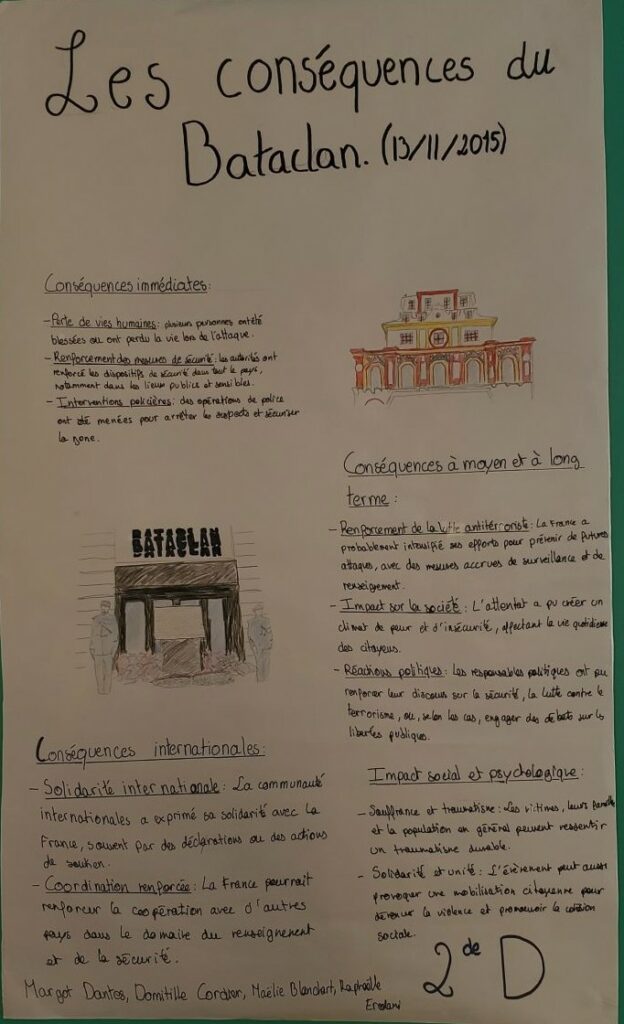 Les conséquences du
Bataclan. (13/11/2015)
Conséquences immédiates:
- Perte de vies humaines: plusieurs personnes ont été
blessées ou ont perdu la vie lors de l'attaque.
- Renforcement des mesures de sécurité: les autorités ont
renforcé les dispositifs de sécurité dans tout le pays,
notamment dans les lieux publics et sensibles.
- Interventions policières: des opérations de police
ont été menées pour arrêter les suspects et sécuriser
la zone.
BATACLAN
BATACLAN
Conséquences à moyen et à long
terme:
- Renforcement de la lutte antiterroriste: La France a
probablement intensifié ses efforts pour prévenir de futures
attaques, avec des mesures accrues de surveillance et de
renseignement.
- Impact sur la société: L'attentat a pu créer un
climat de peur et d'insécurité, affectant la vie quotidienne
des citoyens.
- Réactions politiques: Les responsables politiques ont pu
renforcer leur discours sur la sécurité, la lutte contre le
terrorisme, ou, selon les cas, engager des débats sur les
libertés publiques.
Conséquences internationales:
- Solidarité internationale: La communauté
internationales a exprimé sa solidarité avec la
France, souvent par des déclarations ou des actions
de soutien.
- Coordination renforcée: La France pourrait
renforcer la coopération avec d'autres
pays dans le domaine du renseignement
et de la sécurité.
Impact social et psychologique:
- Souffrance et traumatisme: Les victimes, leurs famille
et la population en général peuvent ressentir
un traumatisme durable.
- Solidarité et unité: L'évènement peut aussi
provoquer une mobilisation citoyenne pour
la violence et promouvoir la cohésion
sociale.
2de D
Margot Dantos, Domitille Cordier, Maëlie Blanchart, Raphaëlle